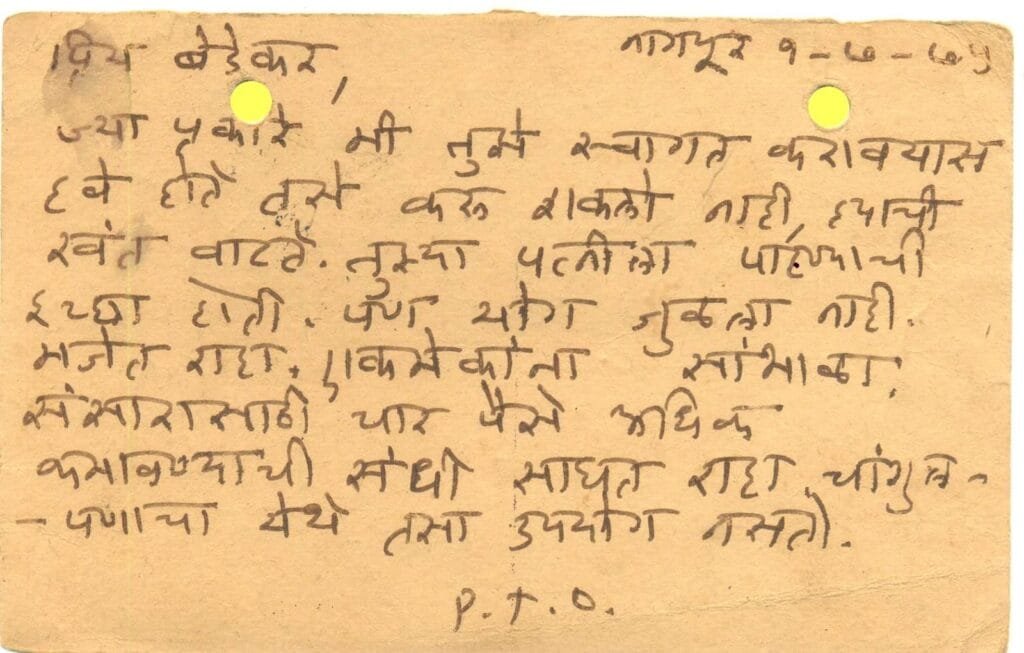 प्रिय बेडेकर,
नागपूर १-७-७५
ज्या प्रकारे मी तुझे स्वागत करावयास
हवे होते तसे करू शकलो नाही, ह्याची
खंत वाटते. तुझ्या पत्नीला पाहण्याची
इच्छा होती. पण योग जुळला नाही.
मजेत राहा. एकमेकांना सांभाळा.
संसारासाठी चार पैसे अधिक
कमावण्याची संधी साधत राहा. चांगुल-
-पणाचा येथे तसा उपयोग नसतो.
P.T.O.